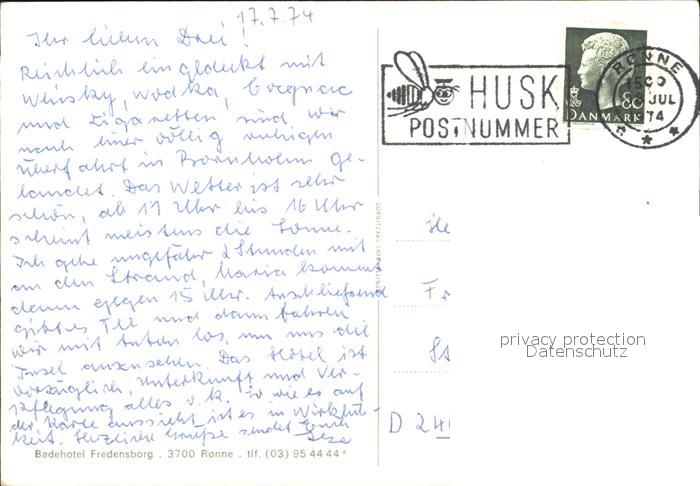 17.7.74
Ihr lieben Drei!
Reichlich eingedeckt mit
Whisky, Wodka, Cognac
und Zigaretten sind wir
nach einer völlig ruhigen
Überfahrt in Bornholm ge-
landet. Das Wetter ist sehr
schön, ab 11 Uhr bis 16 Uhr
scheint meistens die Sonne.
Ich gehe ungefähr 2 Stunden mit
an den Strand, Maria kommt
dann gegen 15 Uhr. Anschließend
gibt es Tee und dann fahren
wir mit Auto los, um uns die
Insel anzusehen. Das Hotel ist
vorzüglich, Unterkunft und Ver-
pflegung alles o.k. So wie es auf
der Karte aussieht ist es in Wirklich-
keit. Herzliche Grüße sendet Euch
Badehotel Fredensborg . 3700 Rønne . tlf. (03) 95 44 44
HUSK
POSTNUMMER
RØNNE
JUL
74
80
DANMARK
He
Fr
St
privacy protection
Datenschutz
D 24